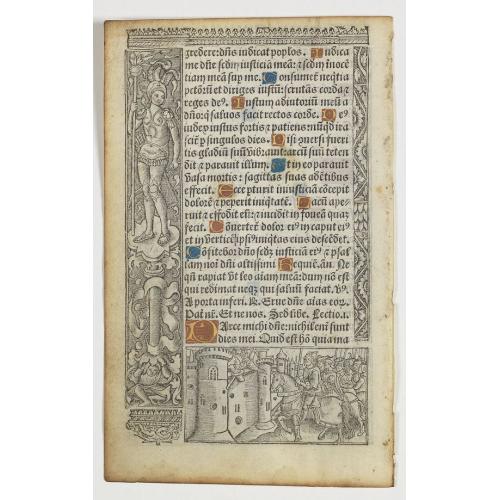 gredere: dñs iudicat poplos. Iudica
me dñe scdm iusticiā meā: ⁊ scdm inocē
tiam meā sup me. Consumet̄ neqtia
petōrū et diriges iustū: scrutās corda ⁊
reges deꝰ. Iustum adiutoriū meū a
dño: q saluos facit rectos corde. Deꝰ
iudex iustus fortis ⁊ patiens nūqd ira
scit̄ p singulos dies. Nisi ↄuersi fueri
tis gladiū suū vibrauit: arcū suū teten
dit ⁊ parauit illum. Et in eo parauit
vasa mortis: sagittas suas ardētibus
effecit. Ecce pturit iniusticiā cōcepit
dolorē ⁊ peperit iniqtatē. Lacū ape
ruit ⁊ effodit eū: ⁊ incidit in foueā quā
fecit. Cōuertet̄ dolor eiꝰ in caput eiꝰ
et in verticē ipsiꝰ iniqtas eius descēdet.
Cōfitebor dño scdꝫ iusticiā eiꝰ ⁊ psal
lam noī dñi altissimi Requiē. añ. Ne
qñ rapiat vt leo aīam meā: dum nō est
qui redimat neqꝫ qui saluū faciat. ꝟꝰ.
A porta inferi. ꝶ. Erue dñe aīas eoꝝ.
Pat̄ nr̄. Et ne nos. Sed libe. Lectio. i.
Parce michi dñe: nichil eni sunt
dies mei. Quid est hō quia ma